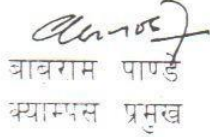 बाबुराम पाण्डे
क्याम्पस प्रमुख